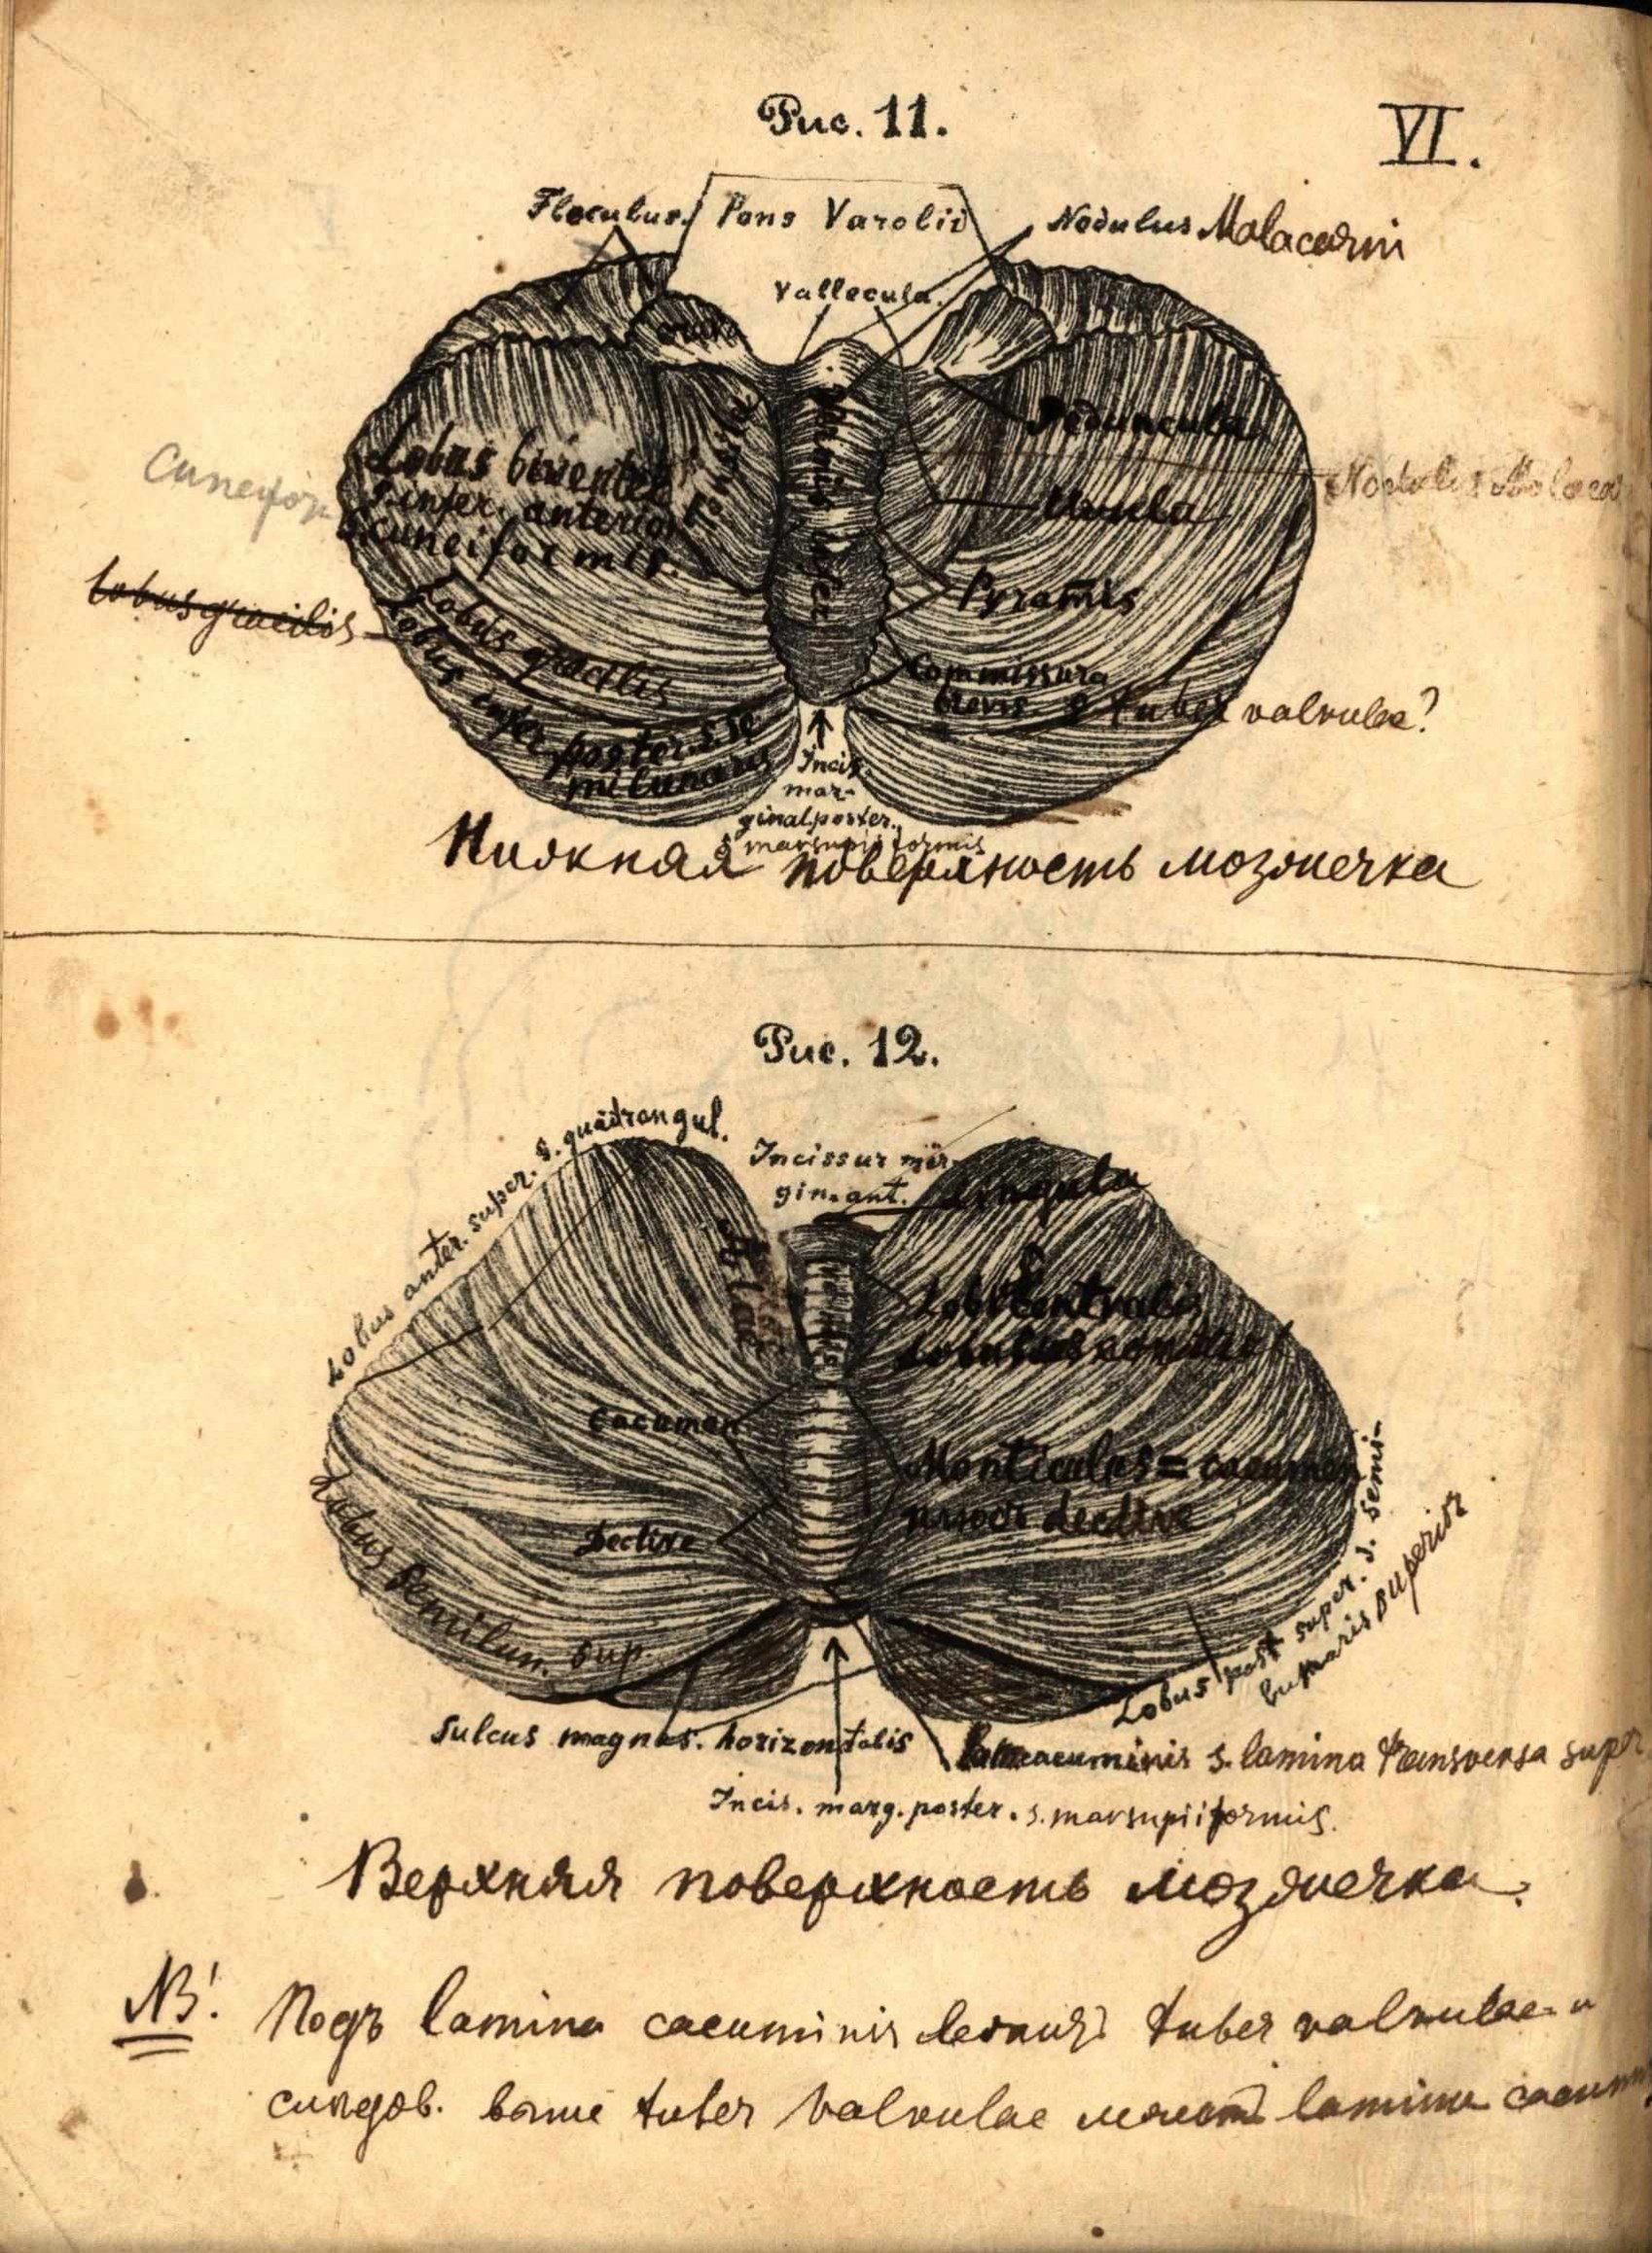 Рис. 11.
VI.
Flocculus.
Pons Varolii
Nodulus Malacarni
Vallecula.
Peduncula
Cuneifor
Lobus biventer
s. infer. anterior
s. cuneiformis.
Tonsila
Nodulus Malacar
Uvula
Lobus gracilis
Pyramis
Lobus gracilis
Lobus infer. poster. s. se
milunaris
Commissura
brevis. s tuber valvulae?
Incis.
mar-
ginal. poster.
s marsupiiformis
Нижняя поверхность мозжечка
Рис. 12.
Lobus anter. super. s. quadrangul.
Incissur mar-
gin. ant.
Lingula
Lobus centralis
Cacumen
Monticulus = cacumen
Declive
declive
Lobus semilun. sup.
Lobus post super. s. semi-
lunaris superior
Sulcus magnus. horizontalis
cacuminis s. lamina transversa super
Incis. marg. poster. s. marsupiiformis.
Верхняя поверхность мозжечка.
NB! Подъ lamina cacuminis лежитъ tuber valvulae и
следов. выше tuber valvulae лежит lamina cacumin